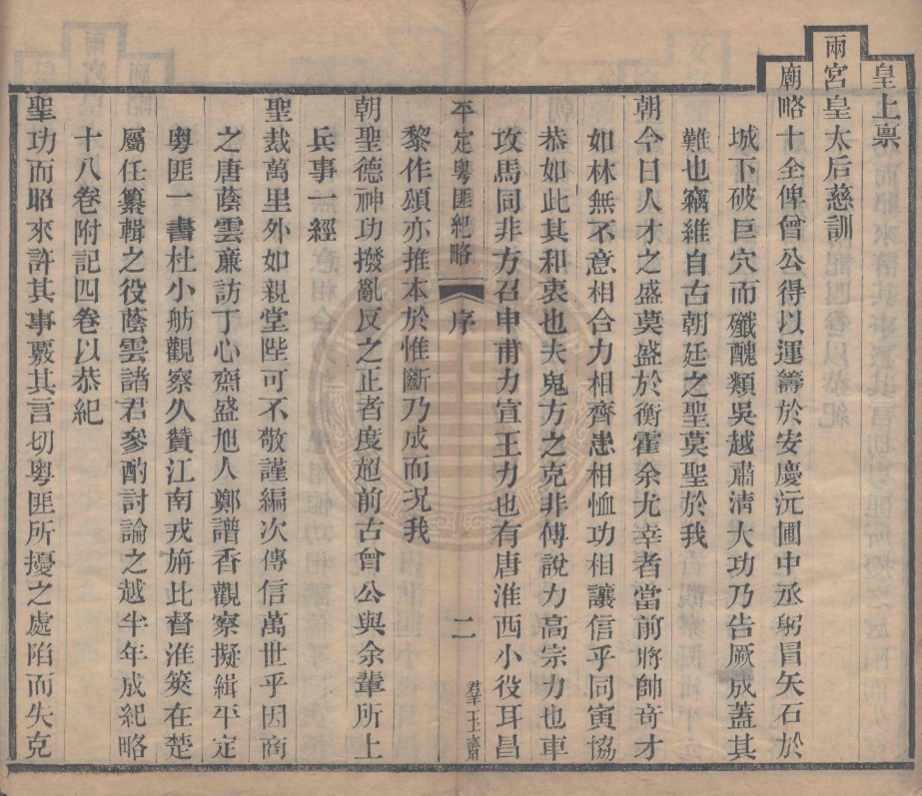 皇上禀
兩宮皇太后慈訓
廟略十全俾曾公得以運籌於安慶沅圃中丞躬冒矢石於
城下破巨穴而殲醜類吳越肅清大功乃告厥成蓋其
難也竊維自古朝廷之聖莫聖於我
朝今日人才之盛莫盛於衡霍余尤幸者當前將帥奇才
如林無不意相合力相齊患相恤功相讓信乎同寅協
恭如此其和衷也夫鬼方之克非傅說力高宗力也車
攻馬同非方召申甫力宣王力也有唐淮西小役耳昌
平定粵匪紀略 序 二
黎作頌亦推本於惟斷乃成而況我
朝聖德神功撥亂反之正者度超前古曾公與余輩所上
兵事一經
聖裁萬里外如親堂陛可不敬謹編次傳信萬世乎因商
之唐蔭雲亷訪丁心齋盛旭人鄭譜香觀察擬緝平定
粵匪一書杜小舫觀察久贊江南戎旃比督淮筴在楚
屬任纂輯之役蔭雲諸君參酌討論之越半年成紀略
十八卷附記四卷以恭紀
聖功而昭來許其事覈其言切粵匪所擾之處陷而失克